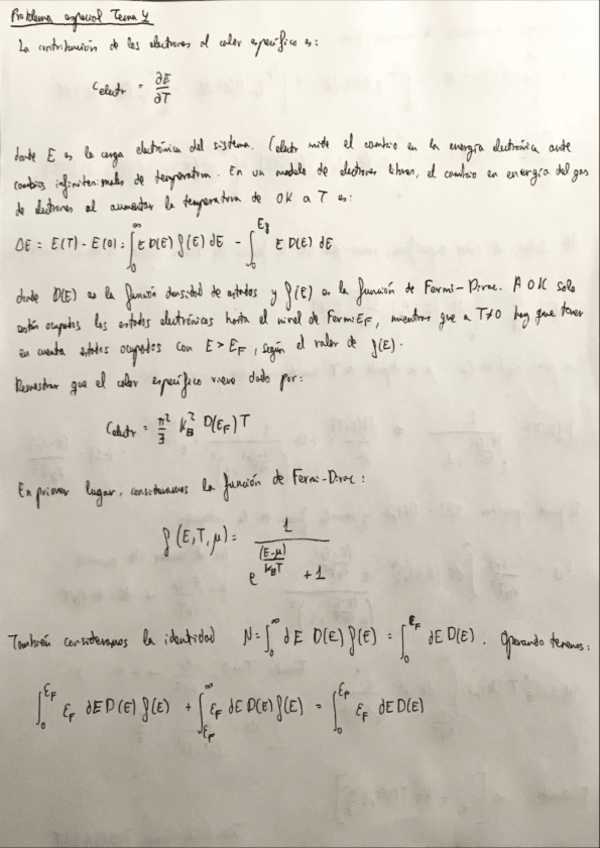 Problema especial Tema 4
La contribución de los electrones al calor específico es:
C_electr = ∂E/∂T
donde E es la carga electrónica del sistema. C_electr mide el cambio en la energía electrónica ante
cambios infinitesimales de temperatura. En un modelo de electrones libres, el cambio en energía del gas
de electrones al aumentar la temperatura de 0K a T es:
ΔE = E(T) - E(0) = ∫_0^∞ E D(E) f(E) dE - ∫_0^{E_f} E D(E) dE
donde D(E) es la función densidad de estados y f(E) es la función de Fermi-Dirac. A 0K solo
están ocupados los estados electrónicos hasta el nivel de Fermi E_F, mientras que a T≠0 hay que tener
en cuenta estados ocupados con E > E_F, según el valor de f(E).
Demostrar que el calor específico viene dado por:
C_electr = π²/3 k_B² D(E_F) T
En primer lugar, consideramos la función de Fermi-Dirac:
f(E,T,μ) = 1 / (e^{(E-μ)/k_BT} + 1)
También consideramos la identidad N = ∫_0^∞ dE D(E) f(E) = ∫_0^{E_F} dE D(E). Operando tenemos:
∫_0^{E_F} E_F dE D(E) f(E) + ∫_{E_F}^∞ E_F dE D(E) f(E) = ∫_0^{E_F} E_F dE D(E)